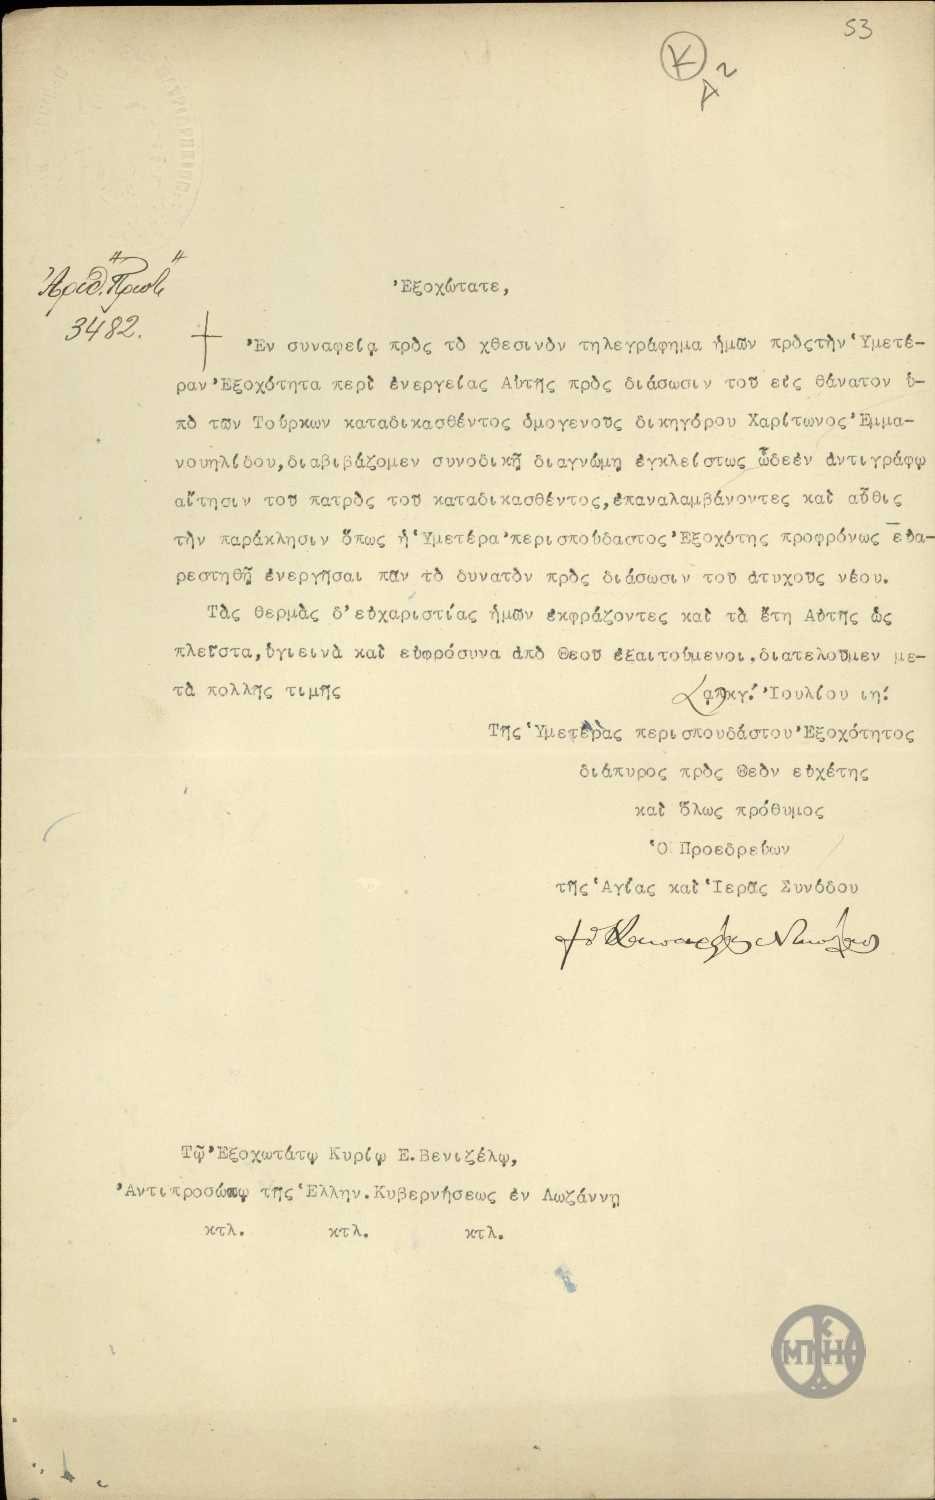 53
Κ
Ἀριθ. Πρωτ.
3482.
Ἐξοχώτατε,
Ἐν συναφείᾳ πρὸς τὸ χθεσινὸν τηλεγράφημα ἡμῶν πρὸςτὴν Ὑμετέ-
ραν Ἐξοχότητα περὶ ἐνεργείας Αὐτῆς πρὸς διάσωσιν τοῦ εἰς θάνατον ὑ-
πὸ τῶν Τούρκων καταδικασθέντος ὁμογενοῦς δικηγόρου Χαρίτωνος Ἐμμα-
νουηλίδου, διαβιβάζομεν συνοδικῇ διαγνώμῃ ἐγκλείστως ὧδεἐν ἀντιγράφῳ
αἴτησιν τοῦ πατρὸς τοῦ καταδικασθέντος, ἐπαναλαμβάνοντες καὶ αὖθις
τὴν παράκλησιν ὅπως ἡ Ὑμετέρα περισπούδαστος Ἐξοχότης προφρόνως εὐα-
ρεστηθῇ ἐνεργῆσαι πᾶν τὸ δυνατὸν πρὸς διάσωσιν τοῦ ἀτυχοῦς νέου.
Τὰς θερμὰς δ' εὐχαριστίας ἡμῶν ἐκφράζοντες καὶ τὰ ἔτη Αὐτῆς ὡς
πλεῖστα, ὑγιεινὰ καὶ εὐφρόσυνα ἀπὸ Θεοῦ ἐξαιτούμενοι, διατελοῦμεν με-
τὰ πολλῆς τιμῆς
͵αϡκγ΄. Ἰουλίου ιη΄.
Τῆς Ὑμετέρας περισπουδάστου Ἐξοχότητος
διάπυρος πρὸς Θεὸν εὐχέτης
καὶ ὅλως πρόθυμος
Ὁ Προεδρεύων
τῆς Ἁγίας καὶ Ἱερᾶς Συνόδου
† ὁ Καισαρείας Νικόλαος
Τῷ Ἐξοχωτάτῳ Κυρίῳ Ε. Βενιζέλῳ,
Ἀντιπροσώπῳ τῆς Ἑλλην. Κυβερνήσεως ἐν Λωζάννῃ
κτλ. κτλ. κτλ.